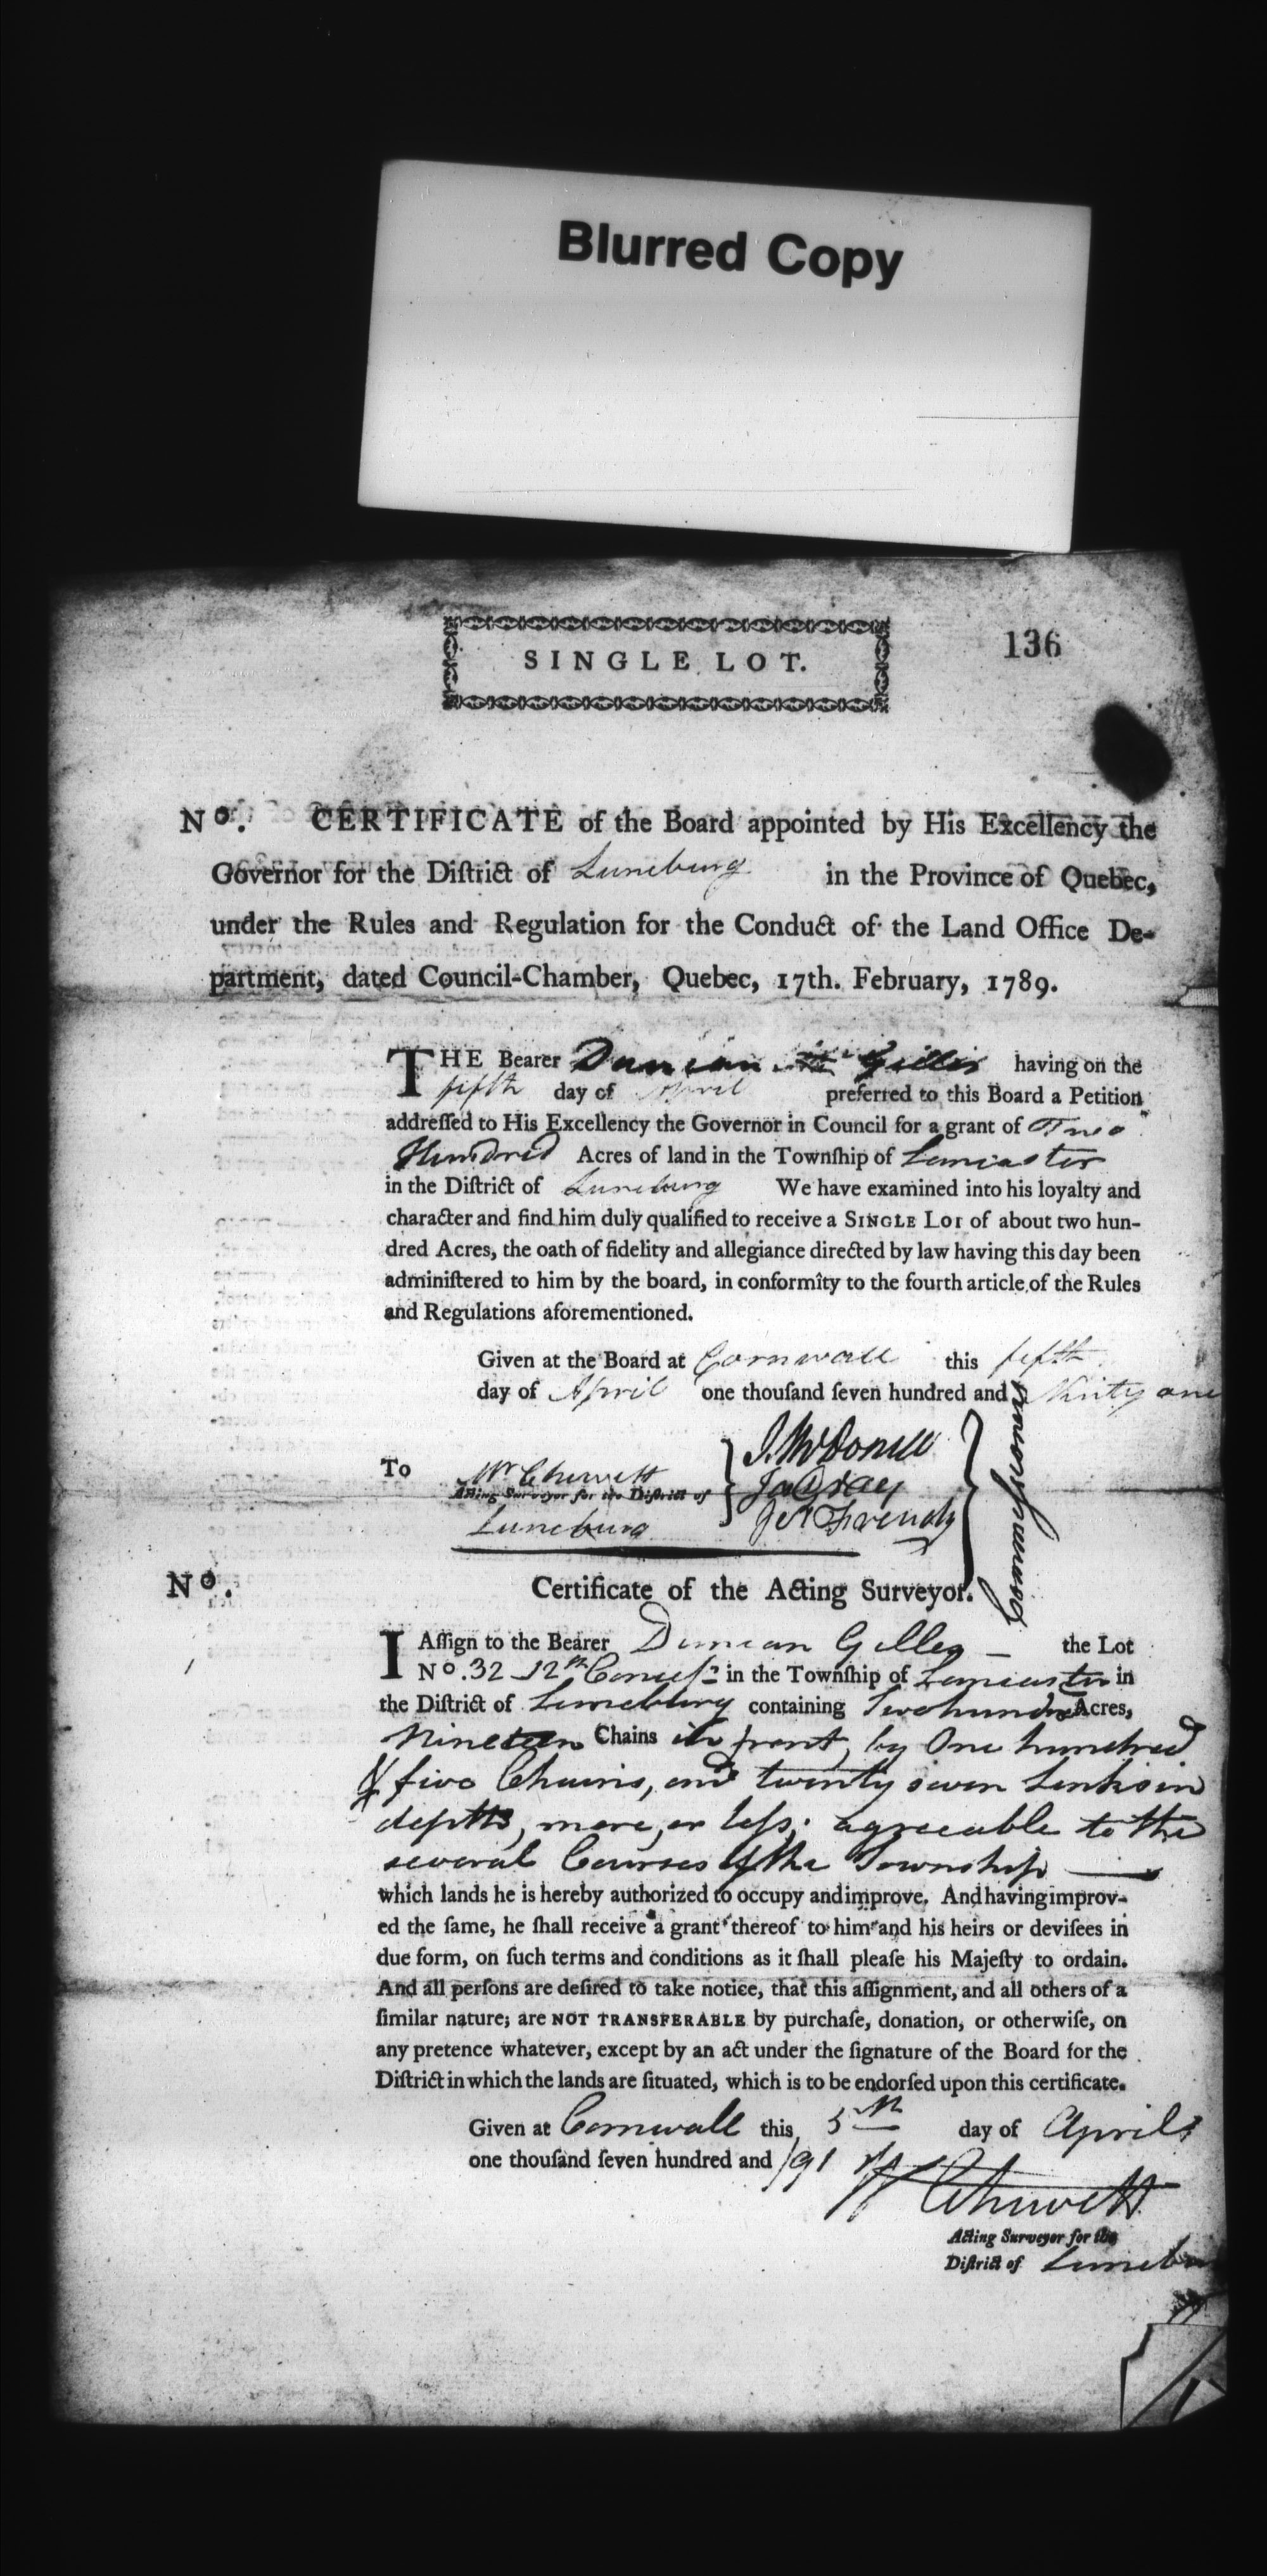 Blurred Copy
SINGLE LOT.
136
No. CERTIFICATE of the Board appointed by His Excellency the
Governor for the Diſtrict of Luneburg in the Province of Quebec,
under the Rules and Regulation for the Conduct of the Land Office De-
partment, dated Council-Chamber, Quebec, 17th. February, 1789.
THE Bearer Duncan Gillis having on the
fifth day of April preferred to this Board a Petition
addreſſed to His Excellency the Governor in Council for a grant of Two
Hundred Acres of land in the Townſhip of Lancaster
in the Diſtrict of Luneburg We have examined into his loyalty and
character and find him duly qualified to receive a SINGLE LOT of about two hun-
dred Acres, the oath of fidelity and allegiance directed by law having this day been
adminiſtered to him by the board, in conformîty to the fourth article of the Rules
and Regulations aforementioned.
Given at the Board at Cornwall this fifth
day of April one thouſand ſeven hundred and Ninty one
To Mr Chewett
Acting Surveyor for the Diſtrict of
Luneburg
J. McDonell
Ja Gray
Jer French
Commissioners
No. Certificate of the Acting Surveyor.
I Aſſign to the Bearer Duncan Gilles the Lot
No. 32 12th Conceſs:n in the Townſhip of Lancaster in
the Diſtrict of Luneburg containing Two hundred Acres,
Nineteen Chains in front, by One hundred
& five Chains, and twenty seven Links in
depth, more, or leſs; agreeable to the
several Courses of the Township
which lands he is hereby authorized to occupy and improve. And having improv-
ed the ſame, he ſhall receive a grant thereof to him and his heirs or deviſees in
due form, on ſuch terms and conditions as it ſhall pleaſe his Majeſty to ordain.
And all perſons are deſired to take notice, that this aſſignment, and all others of a
ſimilar nature; are NOT TRANSFERABLE by purchaſe, donation, or otherwiſe, on
any pretence whatever, except by an act under the ſignature of the Board for the
Diſtrict in which the lands are ſituated, which is to be endorſed upon this certificate.
Given at Cornwall this 5th day of April
one thouſand ſeven hundred and /91 W Chewett
Acting Surveyor for the
Diſtrict of Luneburg